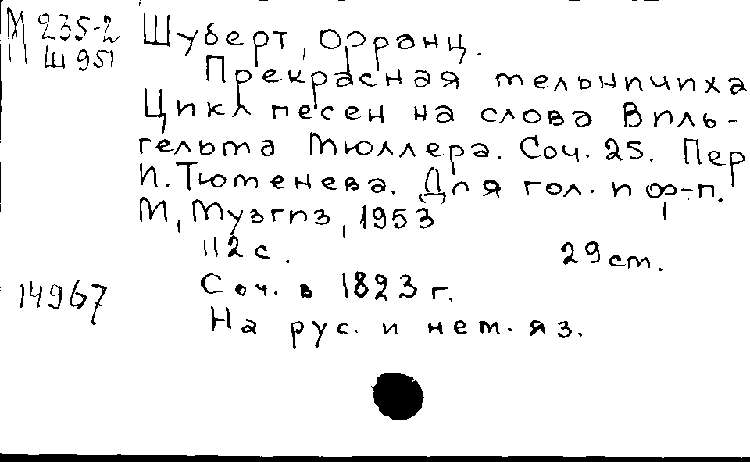 М 235-2
Ш 951
Шуберт, Франц.
Прекрасная мельничиха
Цикл песен на слова Виль-
гельма Мюллера. Соч. 25. Пер
И. Тюменева. Для гол. и ф-п.
М, Музгиз, 1953
112 с. 29 см.
14967
Соч. в 1823 г.
На рус. и нем. яз.